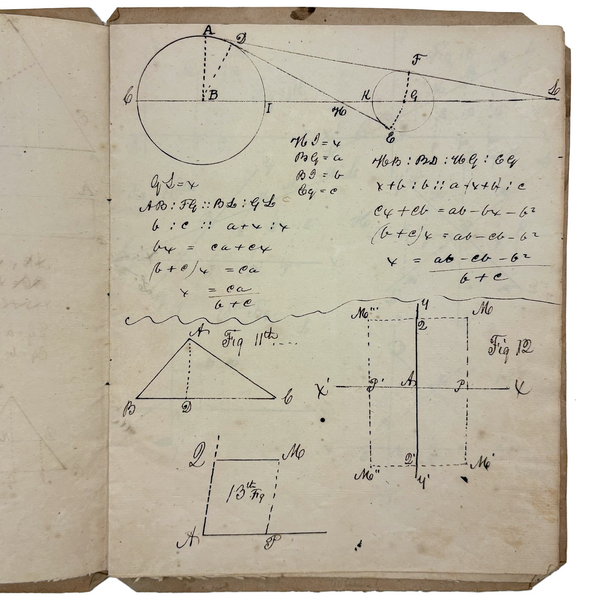 A
D
F
C
B
I
H
K
G
L
E
HI = x
BG = a
BI = b
EG = c
GL = x
AB : FG :: BL : GL
b : c :: a+x : x
bx = ca + cx
(b + c) x = ca
x = ca
b + c
HB : BD : HG : EG
x+b : b :: a-x+b : c
cx + cb = ab - bx - b²
(b + c) x = ab - cb - b²
x = ab - cb - b²
b + c
A
Fig 11th
B
D
C
M'''
Y
M
Q
Fig 12
X'
P'
A
P
X
M''
Q'
M'
Y'
Q
M
13th Fig
A
P